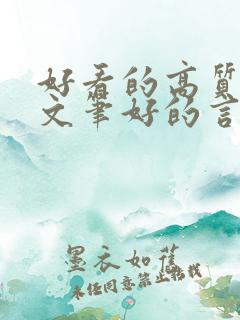 好看的高质
文笔好的言
墨衣如旧
未经同意禁止转载